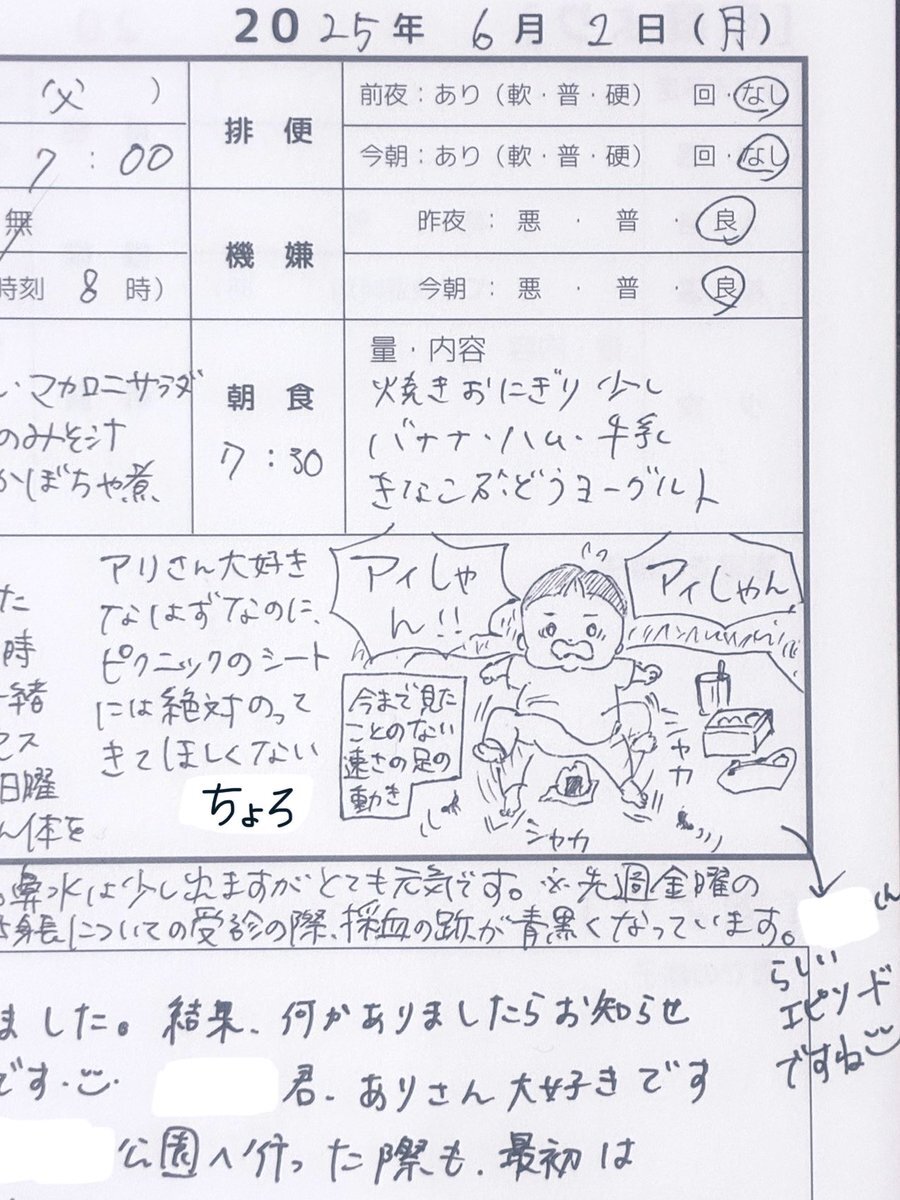 2025年 6月 2日(月)
(父 )
7:00
排便
前夜:あり(軟・普・硬) 回・なし
今朝:あり(軟・普・硬) 回・なし
無
時刻 8 時)
機嫌
昨夜:悪・普・良
今朝:悪・普・良
マカロニサラダ
のみそ汁
かぼちゃ煮
朝食
7:30
量・内容
焼きおにぎり少し
バナナ・ハム・牛乳
きなこぶどうヨーグルト
た
時
一緒
セス
日曜
ん体を
アリさん大好き
なはずなのに、
ピクニックのシート
には絶対のって
きてほしくない
ちょろ
アイしゃ
ん!!
アイしゃん
今まで見た
ことのない
速さの足の
動き
シャカ
シャカ
鼻水は少し出ますがとても元気です。※先週金曜の
身長についての受診の際、採血の跡が青黒くなっています。
くん
らしい
エピソード
ですね
ました。結果、何かありましたらお知らせ
です
君、ありさん大好きです
公園へ行った際も、最初は